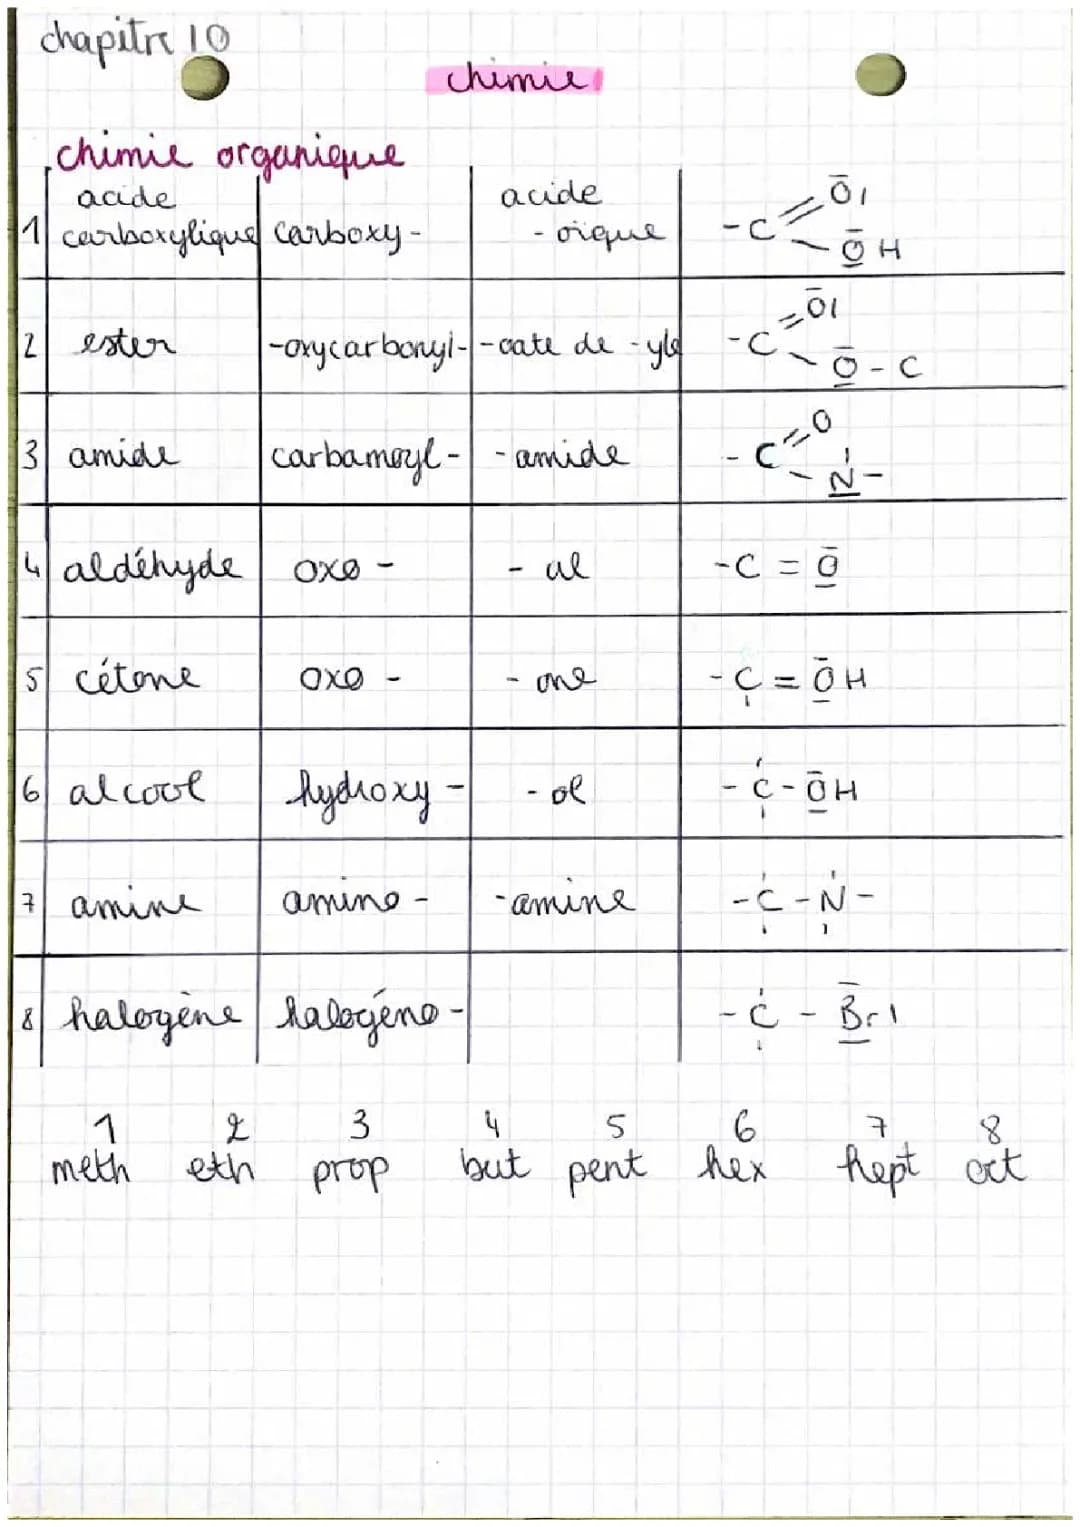 chapitre 10
chimie
chimie organique
1 acide carboxylique carboxy- acide -oïque -C=O| -OH
2 ester -oxycarbonyl- -oate de -yle -C=O| -O-C
3 amide carbamoyl- -amide -C=O -N-
4 aldéhyde oxo- -al -C=O
5 cétone oxo- -one -C=OH
6 alcool hydroxy- -ol -C-OH
7 amine amino- -amine -C-N-
8 halogène halogéno- -C-Br|
1 2 3 4 5 6 7 8
meth eth prop but pent hex hept oct